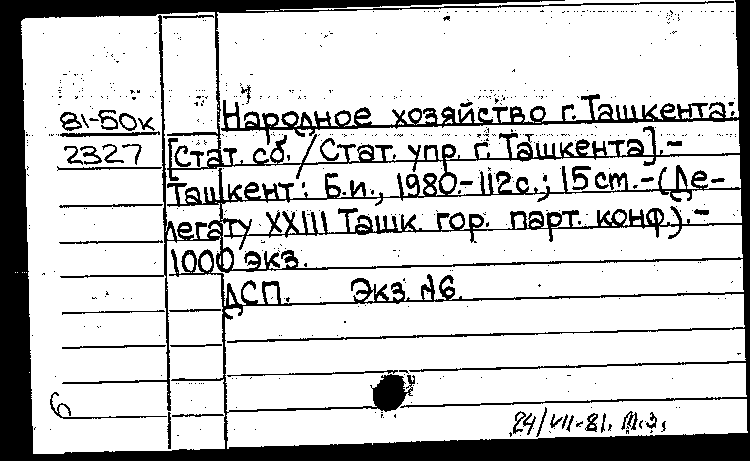 81-50к Народное хозяйство г. Ташкента:
2327 [Стат. сб. / Стат. упр. г. Ташкента].-
Ташкент: Б.и., 1980.-112с.; 15см.-(Де-
легату XXIII Ташк. гор. парт. конф.).-
1000 экз.
ДСП. Экз. №6.
6
24/VII-81. т.з.